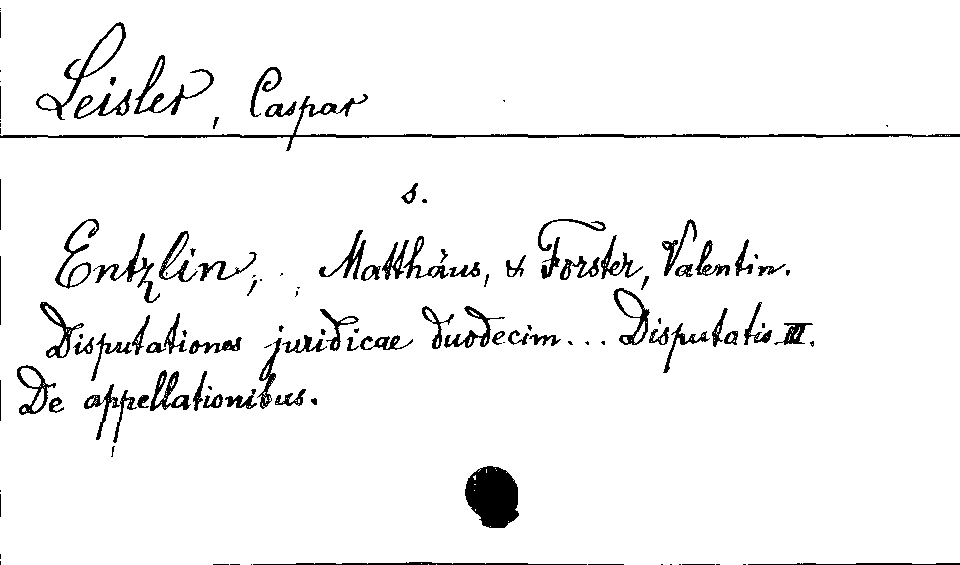 Leisler, Caspar
s.
Entzlin, Matthäus, & Forster, Valentin.
Disputationes juridicae duodecim... Disputatio III.
De appellationibus.